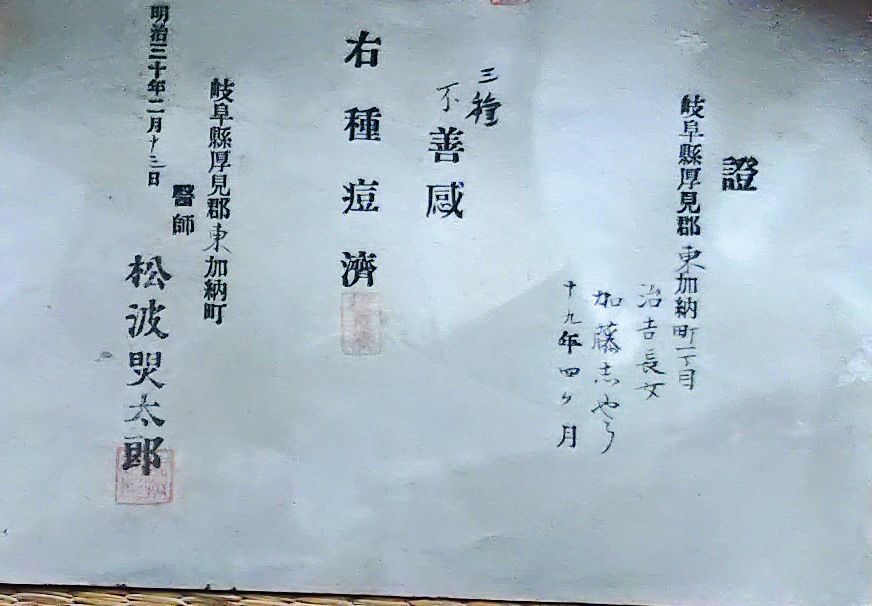 證
岐阜縣厚見郡東加納町一丁目
治吉長女
加藤志やう
十九年四ヶ月
三種
不善感
右種痘濟
岐阜縣厚見郡東加納町
醫師
松波煚太郎
明治三十年二月十三日